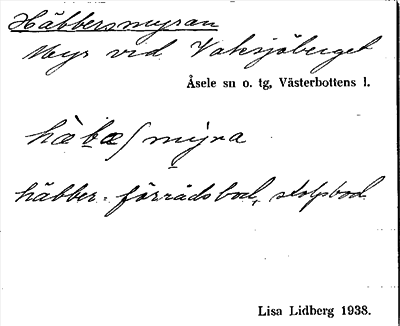 Häbbersmyran
Myr vid Vaksjöberget
Åsele sn o. tg, Västerbottens l.
hä̀bæʃmy̆ra
häbber = förrådsbod, stolpbod
Lisa Lidberg 1938.